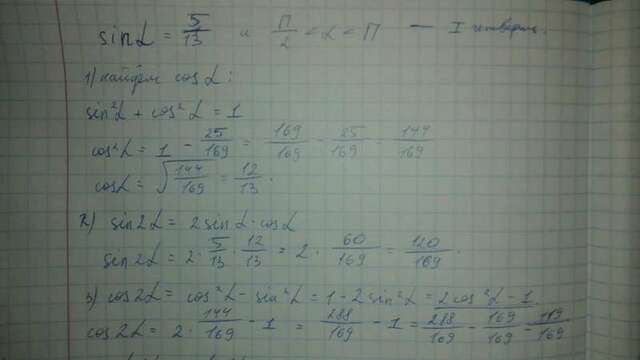 sin α = 5/13 и П/2 < α < П — I четверть.
1) найдём cos α:
sin²α + cos²α = 1
cos²α = 1 - 25/169 = 169/169 - 25/169 = 144/169
cos α = √144/169 = 12/13.
2) sin2α = 2 sin α · cos α
sin2α = 2 · 5/13 · 12/13 = 2 · 60/169 = 120/169.
3) cos2α = cos²α - sin²α = 1 - 2 sin²α = 2 cos²α - 1.
cos2α = 2 · 144/169 - 1 = 288/169 - 1 = 288/169 - 169/169 = 119/169